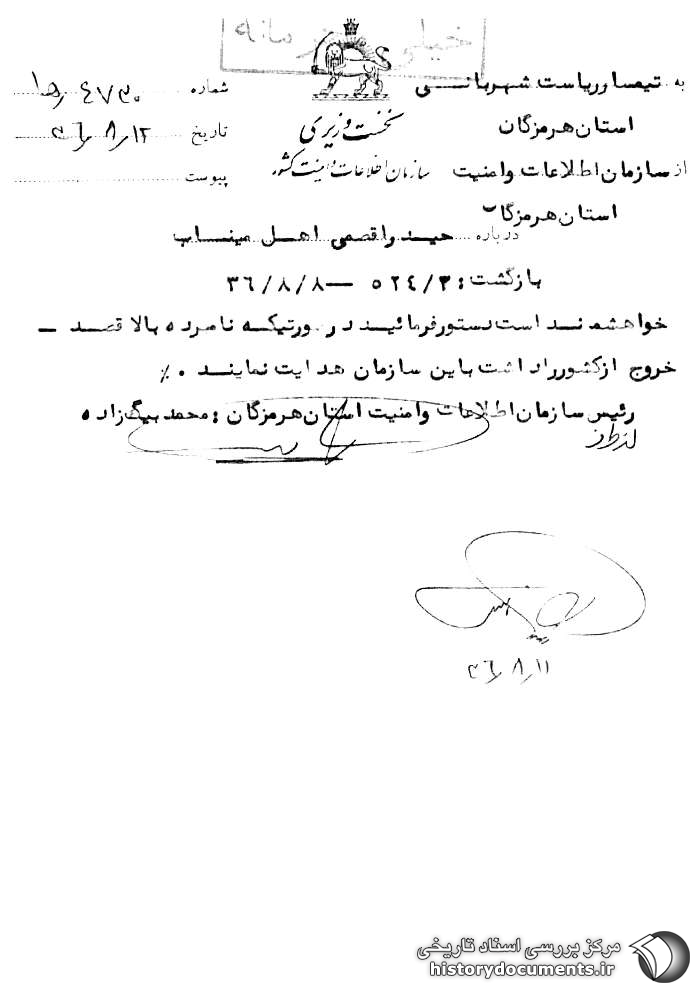 خیلی
به تیمسار ریاست شهربانی
استان هرمزگان
از سازمان اطلاعات و امنیت
استان هرمزگان
نخست وزیری
سازمان اطلاعات و امنیت کشور
شماره ۴۷۳۰
تاریخ ۳۶/۸/۱۲
پیوست
درباره حیدر واقصمی اهل میناب
بازگشت : ۵۲۴/۳ — ۳۶/۸/۸
خواهشمند است دستور فرمائید در صورتیکه نامبرده بالا قصد —
خروج از کشور را داشت باین سازمان هدایت نمایند .٪
رئیس سازمان اطلاعات و امنیت استان هرمزگان : محمد بیگ زاده
از طرف
۳۶/۸/۱۱
مرکز بررسی اسناد تاریخی
historydocuments.ir